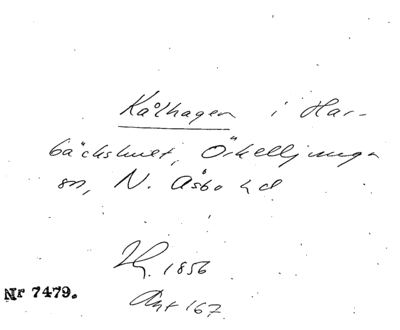 Kålhagen i Har-
bäckshult, Örkelljunga
sn, N. Åsbo hd
1856
Akt 167
Nr 7479.